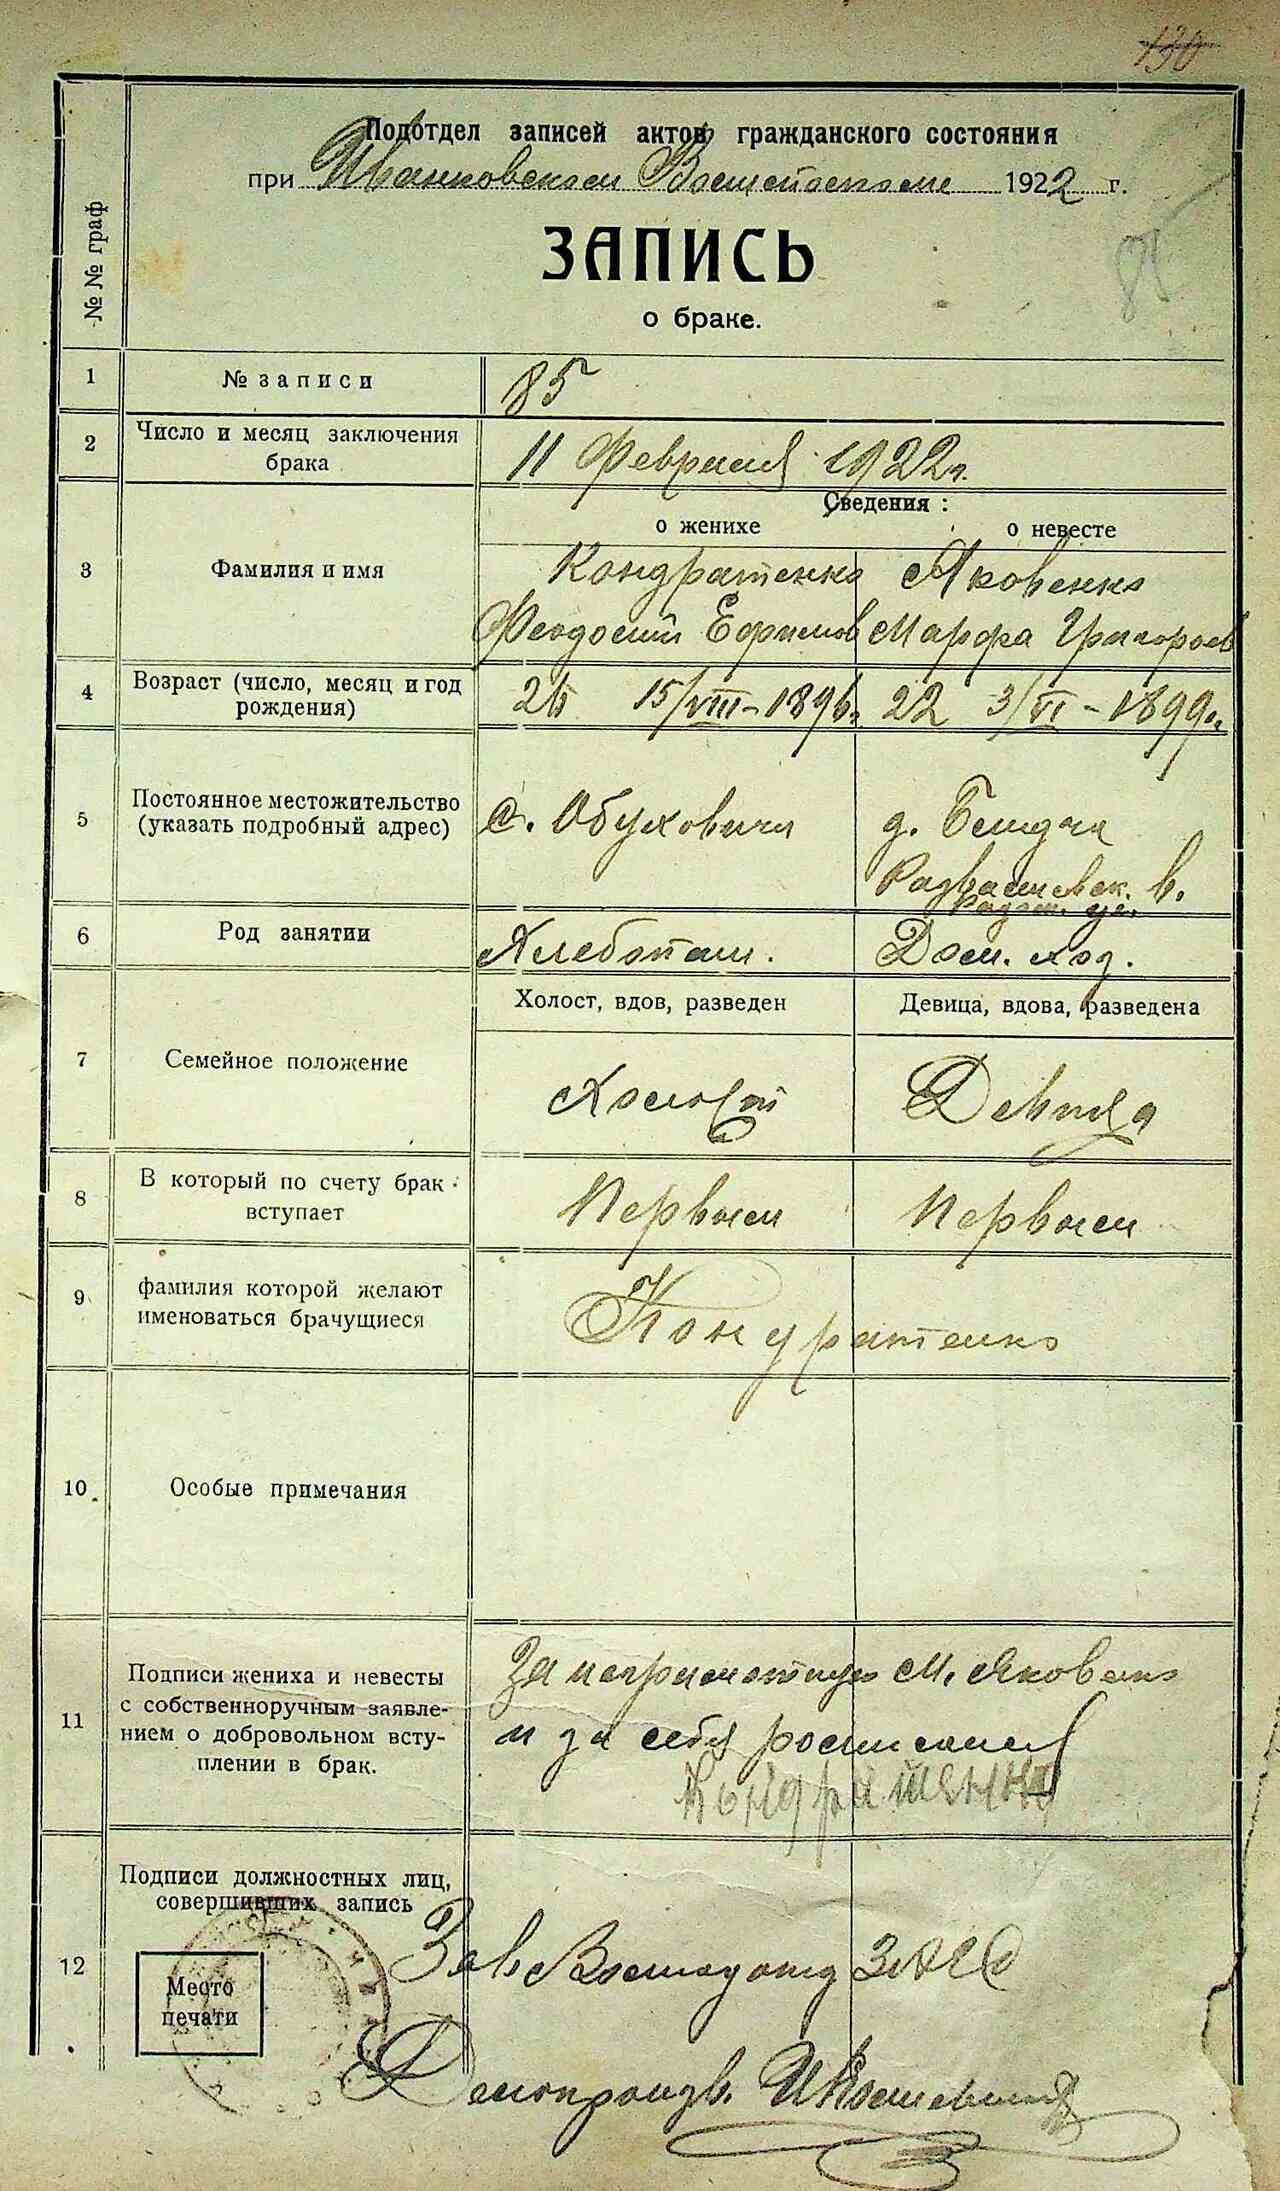 130
Подотдел записей актов гражданского состояния
при Иванковском 1922 г.
85
ЗАПИСЬ
о браке.
№ № граф
1 № записи 85
2 Число и месяц заключения
брака
11 Февраля 1922г.
Сведения :
о женихе о невесте
3 Фамилия и имя
Кондратенко Яковенко
Феодосий Ефимов Марфа Григорьев
4 Возраст (число, месяц и год
рождения)
26 15/VIII-1896г. 22 3/VI-1899г.
5 Постоянное местожительство
(указать подробный адрес)
с. Обуховичи д.
в.
у.
6 Род занятии Хлебопаш. Дом. хоз.
Холост, вдов, разведен Девица, вдова, разведена
7 Семейное положение Холост Девица
8 В который по счету брак
вступает
Первым Первым
9 фамилия которой желают
именоваться брачущиеся
Кондратенко
10 Особые примечания
11 Подписи жениха и невесты
с собственноручным заявле-
нием о добровольном всту-
плении в брак.
За неграмотную М. Яковенко
и за себя росписался
Кондратенко
12 Подписи должностных лиц,
совершивших запись
Место
печати
Зав ЗАГС
Делопроизв.